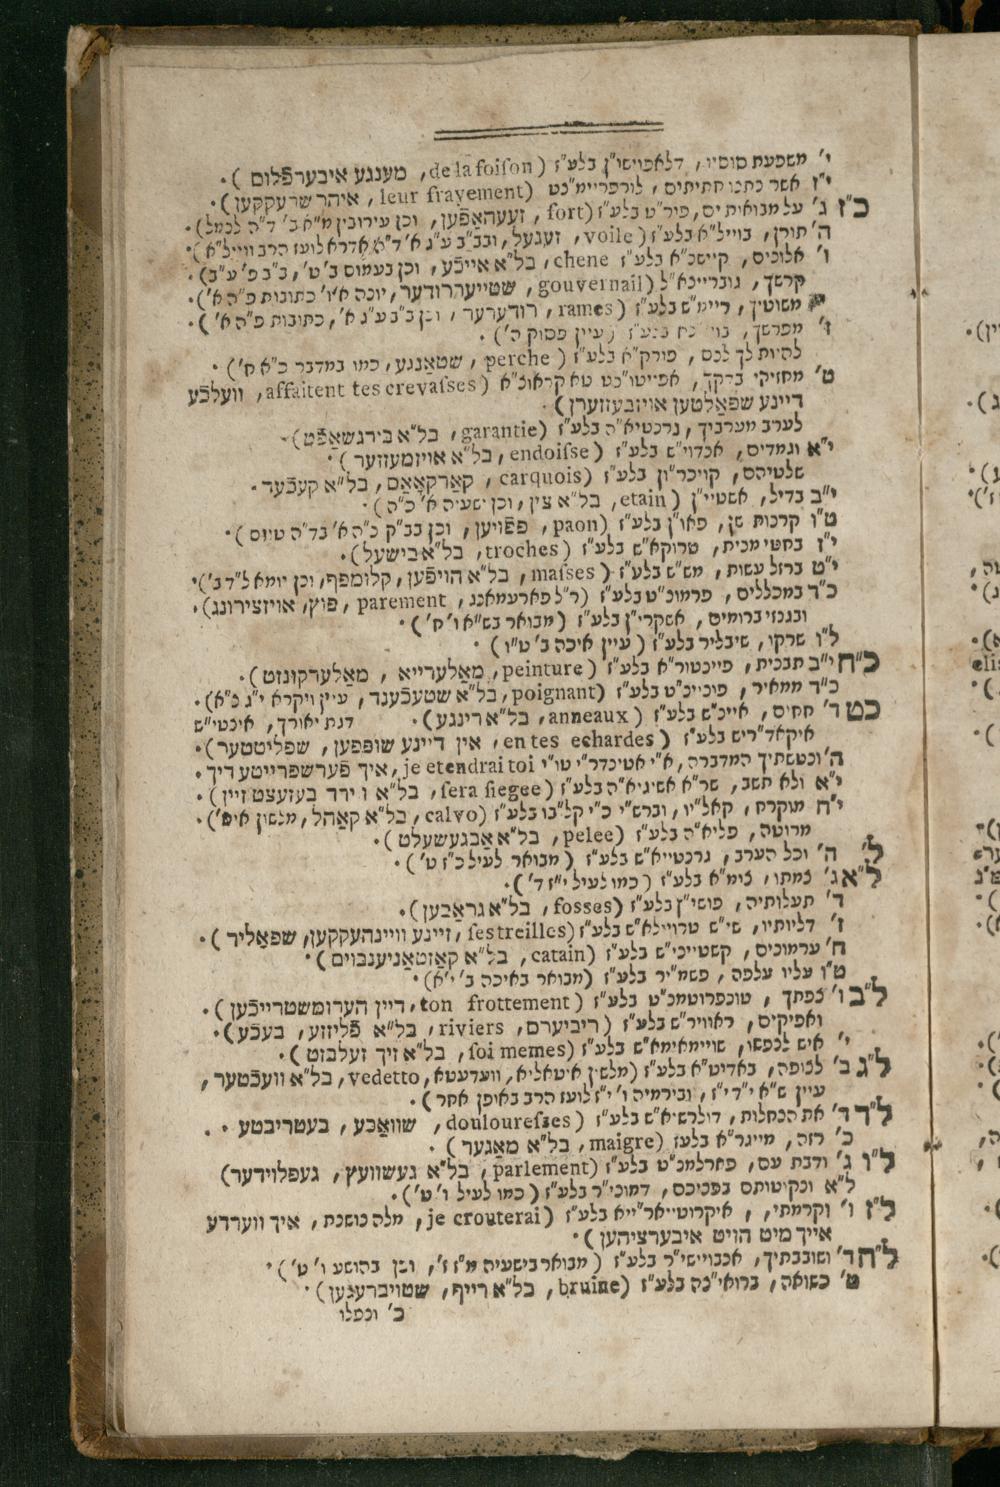 י' משפעת סוסיו, דלאפוישו"ן בלע"ז (de la foiſon, מענגע איבערפֿלוס).
י"ז אשר כתנו חתיתים, לורפריימ"נט (leur frayement, איהר שרעקקען).
כ"ז ג' על מבואות ים, פור"ט בלע"ז (fort, זעעהאַפֿען, וכן עירובין מ"א ב' ד"ה לנמל).
ה' תורן, בוייל"א בלע"ז (voile, זעגעל, ובב"ב ע"ג א' ד"ה אדרא לועז הרב ווייל"א).
ו' אלונים, קיישנ"א בלע"ז chene, בל"א אייכֿע, וכן בעמוס ב' ט', ב"ב פ' ע"ב).
קרשך, גוברייננא"ל (gouvernail, שטייעררודער, יונה א' ו' כתובות פ"ה א').
משוטין, ריימ"ש בלע"ז (rames, רודערער, וכן ב"ב ע"ג א', כתובות פ"ה א').
ז' מפרשך, בלע"ז (עיין פסוק ה').
להיות לך לנס, פורק"א בלע"ז (perche, שטאַנגע, כמו במדבר כ"א ח')
ט' מחזיקי בדקך, אפייטו"נט טא קראוצ"א (affaitent tes crevaſses, וועלכֿע
דיינע שפאַלטען אויזבעזזערן).
לערב מערביך, גרנטיא"ה בלע"ז (garantie, בל"א בירגשאַפֿט)
י"א וגמדים, אנדוי"ש בלע"ז (endoiſse, בל"א אויזמעזזער).
שלטיהם, קויכר"ון בלע"ז (carquois, קאַרקאָאַס, בל"א קעכֿער.
י"ב בדיל, אשטיי"ן (etain, בל"א צין, וכן ישעיה א' כ"ה).
ט"ו קרנות שן, פאו"ן בלע"ז (paon, פפֿויען, וכן בב"ק כ"ה א' בד"ה טיוס).
י"ז בחטי מנית, טרוקא"ש בלע"ז (troches, בל"א בישעל).
י"ט ברזל עשות, מש"ש בלע"ז (maſses, בל"א הויפֿען, קלומפף, וכן יומא ל"ד ב').
כ"ד במכללים, פרמונ"ט בלע"ז (ר"ל פארעמאנג, parement, פוץ, אויזצירונג).
ובגנזי ברומים, אשקרי"ן בלע"ז (מבואר בש"א ו' ח').
ל"ו שרקו, שיבליר בלע"ז (עיין איכה ב' ט"ו).
כ"ח י"ב תבנית, פיינטור"א בלע"ז (peinture, מאַלערייא, מאַלערקונזט).
כ"ד ממאיר, פוניינ"ט בלע"ז (poignant, בל"א שטעכֿענד, עיין ויקרא י"ג נ"א).
כט ד' חחים, איינ"ש בלע"ז (anneaux, בל"א רינגע). דגת יאוריך, אינטי"ש
איקארד"ריש בלע"ז (en tes echardes, אין דיינע שופפען, שפליטטער).
ה' ונטשתיך המדברה, א"י אטינדר"י טו"י je etendrai toi, איך פֿערשפרייטע דיך.
י"א ולא תשב, שר"א אשיגיא"ה בלע"ז (ſera ſiegee, בל"א ווירד בעזעצט זיין).
י"ח מוקרח, קאל"יו, וברש"י כ"י קל"בו בלע"ז (calvo, בל"א קאַהל, מלשון איט').
מרוטה, פליא"ה בלע"ז (pelee, בל"א אַבגעשעלט).
ל' ה' וכל הערב, גרנטייא"ש בלע"ז (מבואר לעיל כ"ז ט').
ל"א ג' צמתו, צימ"א בלע"ז (כמו לעיל י"ז ד').
ד' תעלותיה, פושי"ן בלע"ז (fosses, בל"א גראַבען).
ז' דליותיו, שי"ש טרויילא"ש בלע"ז (ſes treilles, זיינע וויינהעקקען, שפאַליר).
ח' ערמונים, קשטייני"ש בלע"ז (catain, בל"א קאַזטאַניענבוים).
ט"ו עליו עלפה, פשמ"יר בלע"ז (מבואר באיכה ב' י"א).
ל"ב ו' צפתך, טונפרוטמנ"ט בלע"ז (ton frottement, דיין הערומשטרייכֿען).
ואפיקים, ראוויר"ש בלע"ז (ריביערס, riviers, בל"א פֿליזזע, בעכֿע).
י' איש לנפשו, שויימאימא"ש בלע"ז (ſoi memes, בל"א זיך זעלבזט).
ל"ג ב' לצופה, באדיט"א בלע"ז (מלשון איטאליא, וועדעטא, vedetto, בל"א וועכֿטער,
עיין ש"א י"ד י"ז, ובירמיה ו' י"ז לועז הרב באופן אחר).
ל"ד ד' את הנחלות, דולרש"א"ש בלע"ז (doulourefses, שוואַכֿע, בעטריבטע.
כ' רזה, מייגר"א בלעז (maigre, בל"א מאַגער).
ל"ו ג' ודבת עם, פארלמנ"ט בלע"ז (parlement, בל"א געשוועץ, געפלוידער)
ל"א ונקיטותם בפניכם, דמוני"ר בלע"ז (כמו לעיל ו' ט').
ל"ז ו' וקרמתי, איקרוטייאר"ייא בלע"ז (je crouterai, מלה נושנת, איך ווערדע
אייך מיט הויט איבערציהען).
ל"ח ד' ושובבתיך, אנבויישי"ר בלע"ז (מבואר בישעיה מ"ז ז', וכן בהושע ו' ט').
ט' כשואה, ברואי"נה בלע"ז (bruine, בל"א רייף, שטויברעגען).
כ' ונפלו